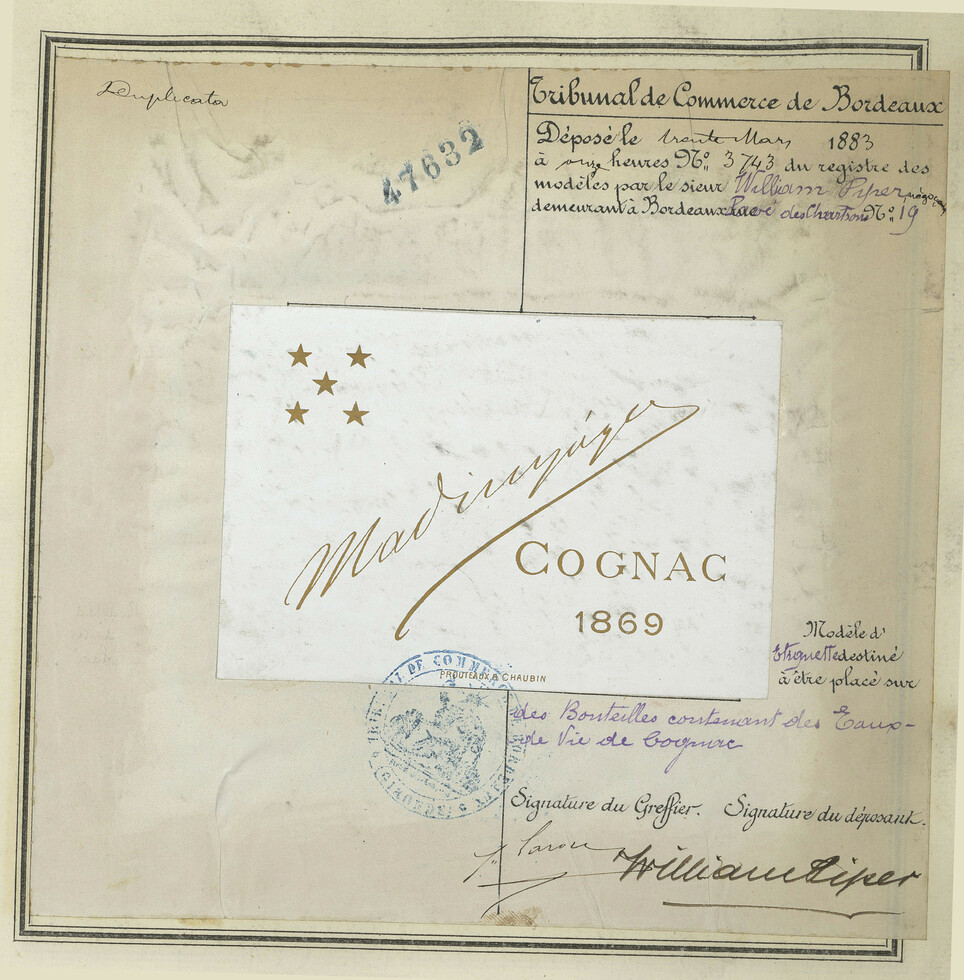 Duplicata
47632
Tribunal de Commerce de Bordeaux
Déposé le trente Mars 1883
à onze heures No. 3743 du registre des
modèles par le sieur William Piper, négociant
demeurant à Bordeaux Pavé des Chartrons No. 19
COGNAC
1869
PROUTEAUX & CHAUBIN
Modèle d'
Etiquette destiné
à être placé sur
des Bouteilles contenant des Eaux-
de Vie de Cognac
Signature du Greffier. Signature du déposant.
William Piper